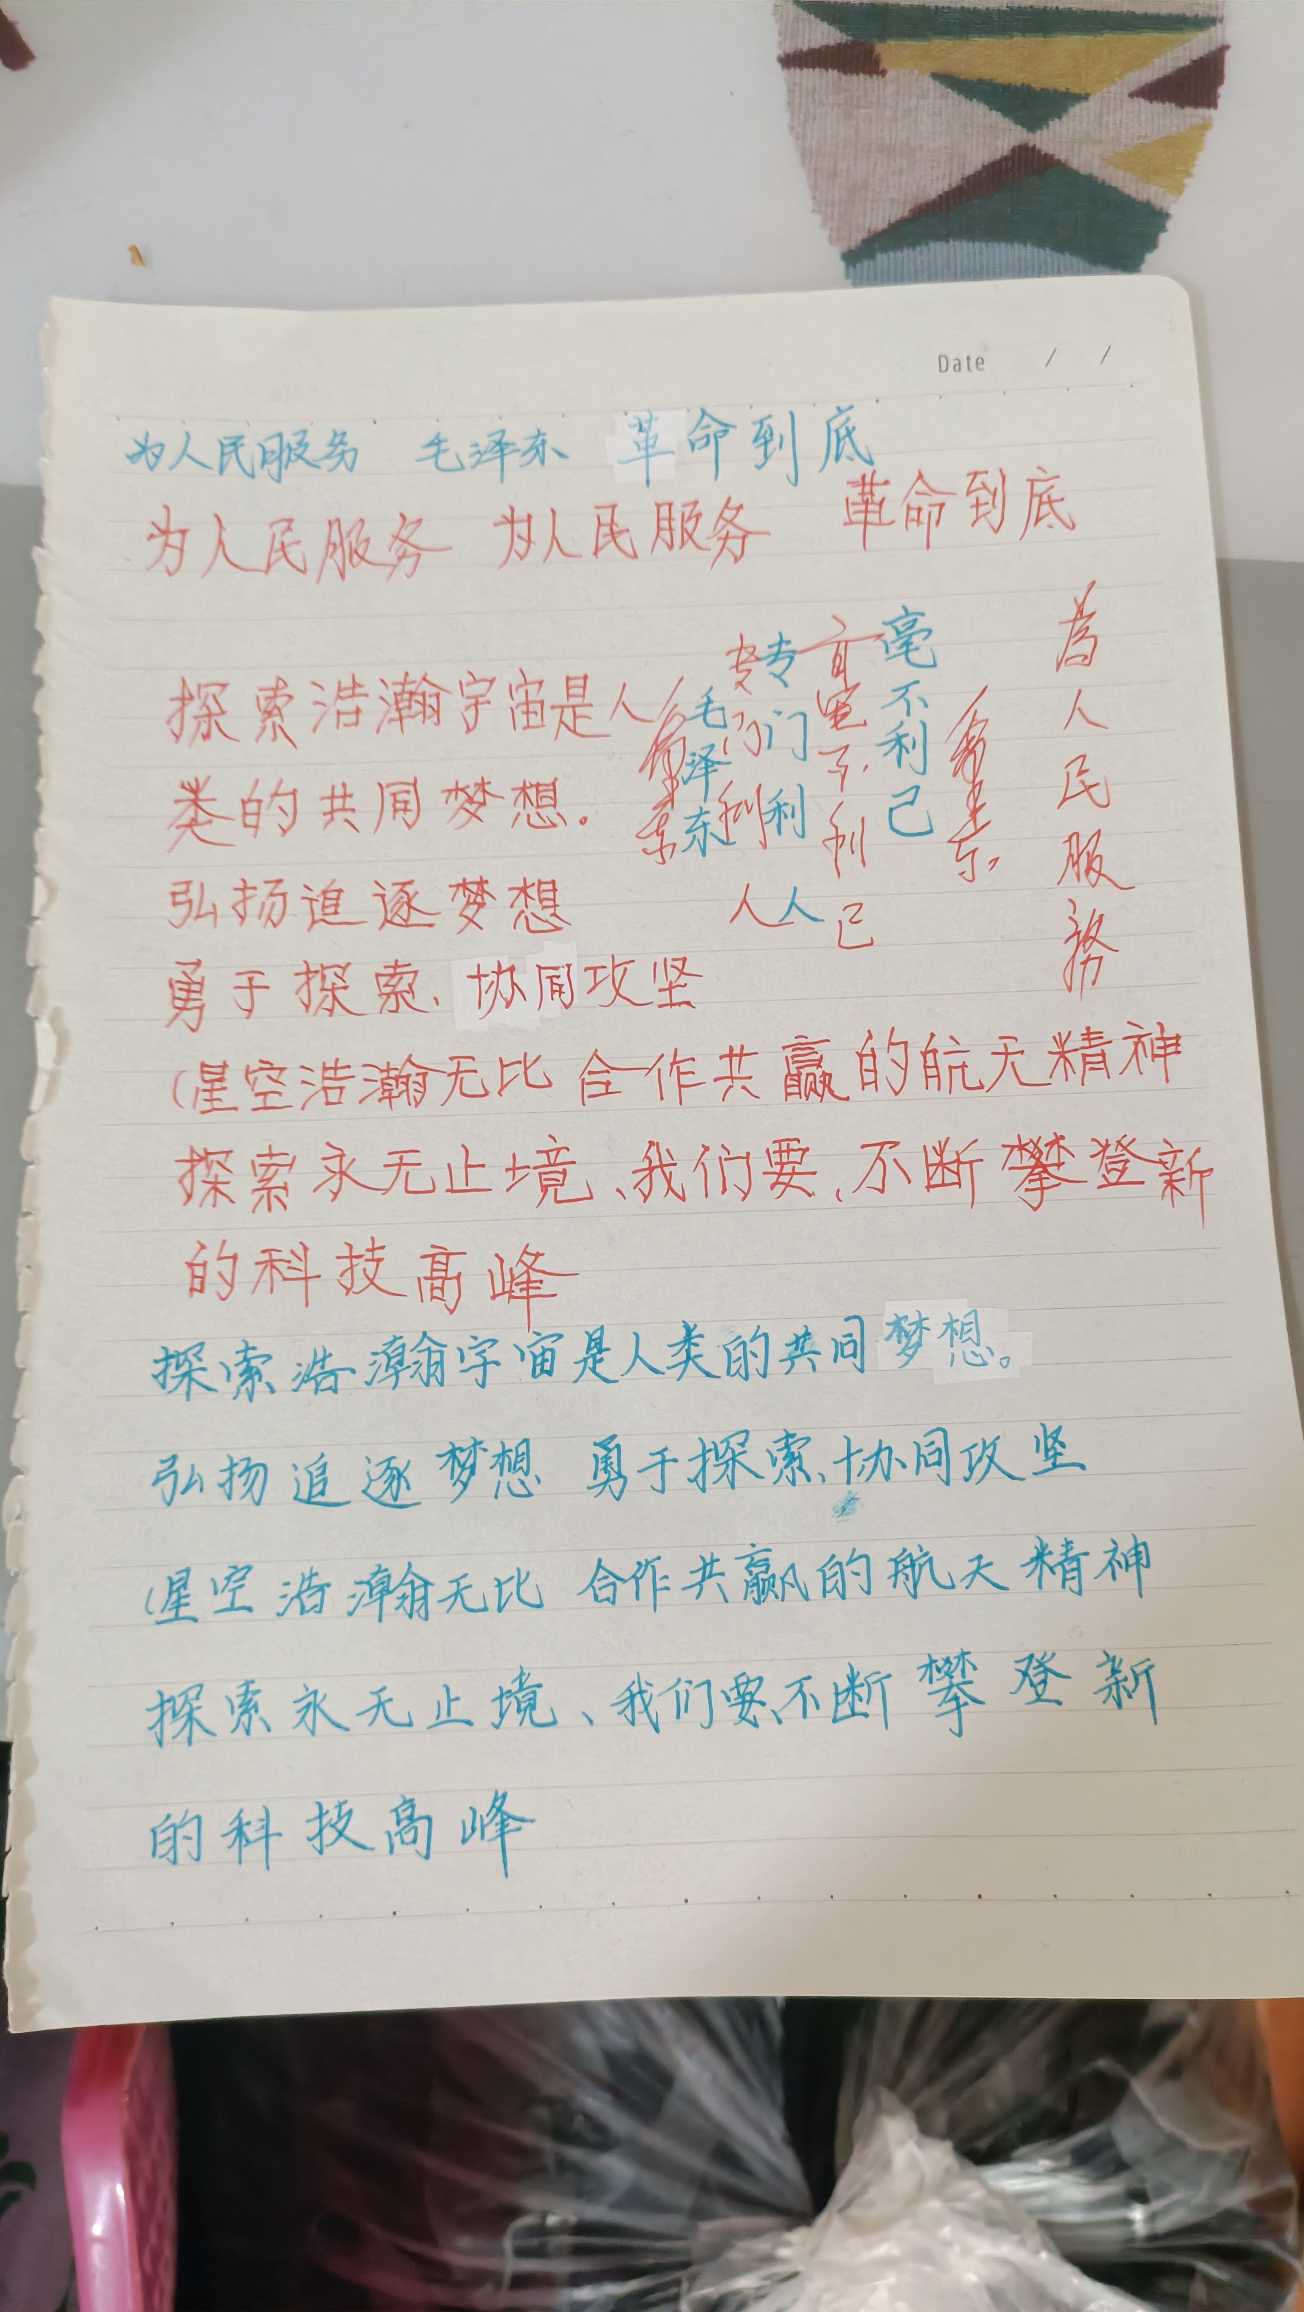 Date / /
为人民服务 毛泽东 革命到底
为人民服务 为人民服务 革命到底
為人民服務
毫不利己
专门利人
毛泽东
探索浩瀚宇宙是人
类的共同梦想。
弘扬追逐梦想
勇于探索、协同攻坚
(星空浩瀚无比 合作共赢的航天精神
探索永无止境、我们要、不断攀登新
的科技高峰
探索浩瀚宇宙是人类的共同梦想。
弘扬追逐梦想 勇于探索、协同攻坚
(星空浩瀚无比 合作共赢的航天精神
探索永无止境、我们要、不断攀登新
的科技高峰